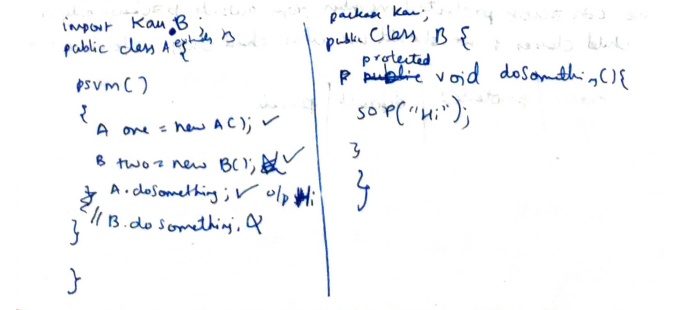 import Kau.B;
public class A extends B
{
psvm()
{
A one = new A(); ✓
B two = new B(); ✓
} A.dosomething; ✓ o/p Hi
// B.do something.
}
}
package Kau;
public Class B {
protected
void doSomething(){
SOP("Hi");
}
}